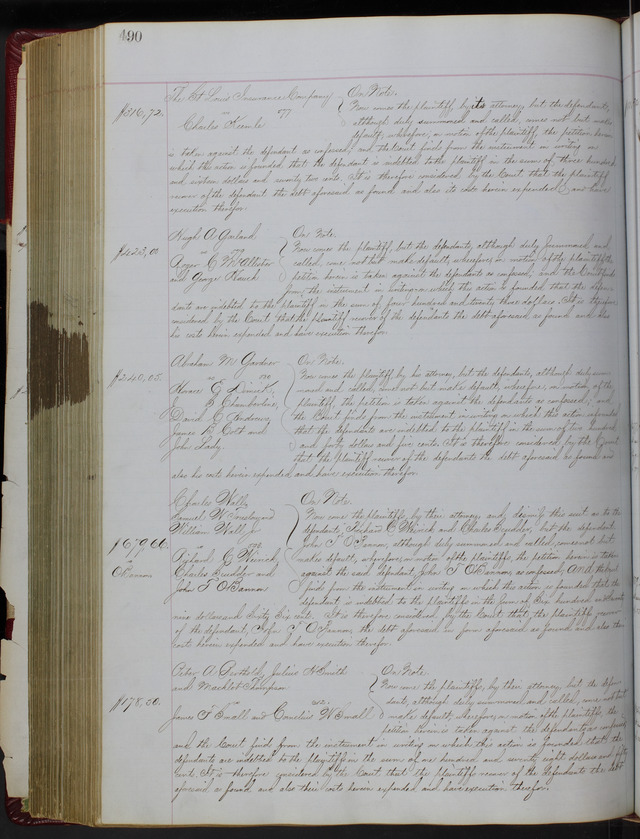 490
The St Louis Insurance Company } On Note.
$316,72. vs 77 Now comes the plaintiff by its attorney, but the defendant,
Charles Keemle although duly summoned and called, comes not but makes
default, wherefore, on motion of the plaintiff, the petition herein
is taken against the defendant as confessed, and the Court finds from the instrument in writing on
which this action is founded, that the defendant is indebted to the plaintiff in the sum of three hundred
and sixteen dollars and seventy two cents. It is therefore considered by the Court that the plaintiff
recover of the defendant the debt aforesaid as found and also its costs herein expended, and have
execution therefor.
Hugh A Garland On Note.
$422,00 vs Now comes the plaintiff, but the defendants, although duly summoned and
called, come not but make default, wherefore, on motion of the plaintiff the
and George petition herein is taken against the defendants as confessed, and the Court finds
from the instrument in writing on which this action is founded that the defen-
dants are indebted to the plaintiff in the sum of four hundred and twenty two dollars. It is therefore
considered by the Court that the plaintiff recover of the defendants the debt aforesaid as found and also
his costs herein expended and have execution therefor.
Abraham M Gardner On Note.
$240,05. vs Now comes the plaintiff by his attorney, but the defendants, although duly sum-
Horace moned and called, come not but make default, wherefore, on motion, of the
J plaintiff the petition is taken against the defendants as confessed, and
David the Court finds from the instrument in writing on which this action is founded
James B Colt and that the defendants are indebted to the plaintiff in the sum of two hundred
John and forty dollars and five cents. It is therefore considered by the Court
that the plaintiff recover of the defendants the debt aforesaid as found and
also his costs herein expended and have execution therefor.
Charles Wall, On Note.
Samuel and Now come the plaintiffs, by their attorney, and dismiss this suit as to the
William Wall Jr defendants, Richard and Charles but the defendant
$679,66. vs John T O'Bannon, although duly summoned and called, comes not but
O'Bannon Richard makes default, wherefore, on motion of the plaintiffs, the petition herein is taken
Charles and against the said defendant, John T O'Bannon, as confessed, and the Court
John T O'Bannon finds from the instrument in writing on which this action is founded that the
defendant, is indebted to the plaintiffs in the sum of six hundred and seventy
nine dollars and sixty six cents. It is therefore considered, by the Court that the plaintiffs recover
of the defendant, John T O'Bannon, the debt aforesaid in form aforesaid as found and also their
costs herein expended and have execution therefor.
Peter A Berthold, Julius H Smith On Note.
and Macklot Thompson Now come the plaintiffs, by their attorney, but the defen-
$178.50. vs dants, although duly summoned and called, come not but
James T Small and Cornelius W Small make default, wherefore, on motion of the plaintiffs, the
petition herein is taken against the defendants as confessed,
and the Court finds from the instrument in writing on which this action is founded that the
defendants are indebted to the plaintiffs in the sum of one hundred and seventy eight dollars and fifty
cents. It is therefore considered by the Court that the plaintiffs recover of the defendants the debt
aforesaid as found and also their costs herein expended and have execution therefor.